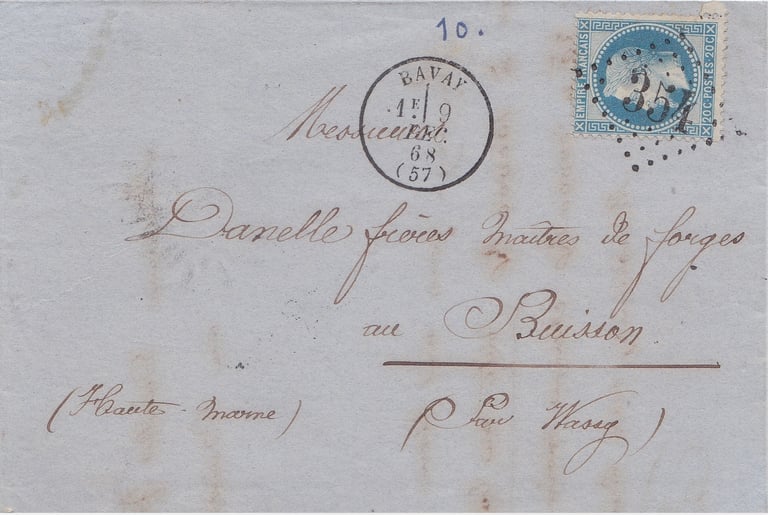 10.
EMPIRE FRANÇAIS
20C POSTES 20C
354
BAVAY
1E 9
DEC.
68
(57)
Messieurs
Danelle frères maîtres de forges
au Buisson
(Haute-marne)
(Par Wassy)